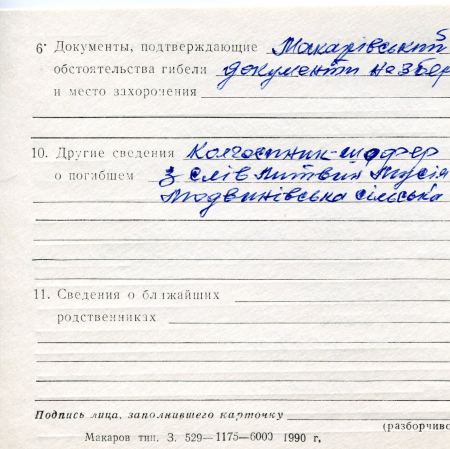 6· Документы, подтверждающие Макарівський
обстоятельства гибели документи не збер
и место захоронения
10. Другие сведения Колгоспник-шофер
о погибшем з слів Литвин
сільська
11. Сведения о ближайших
родственниках
Подпись лица, заполнившего карточку
(разборчиво
Макаров тип. З. 529—1175—6000 1990 г.